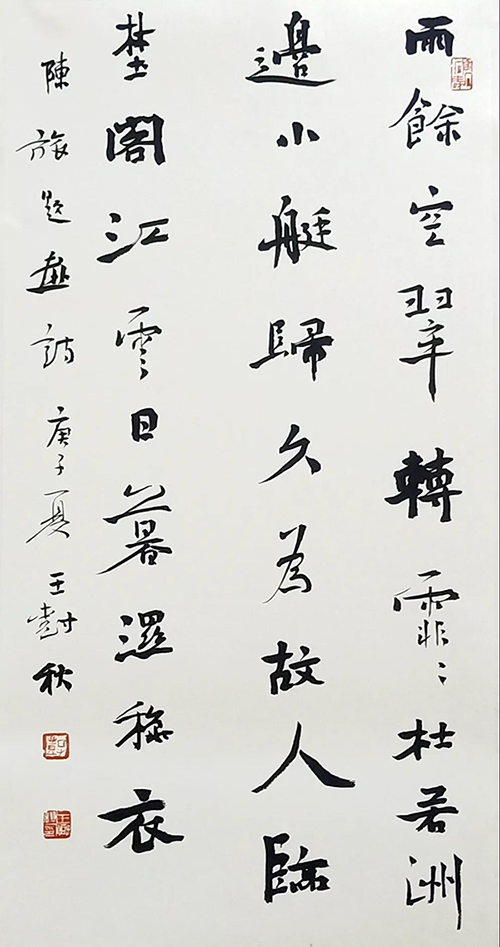 雨餘空翠轉霏〻杜若洲
邊小艇歸久為故人臨
埜閣江雲日暮濕衣
陳旅題畫詩 庚子夏 王尌秋